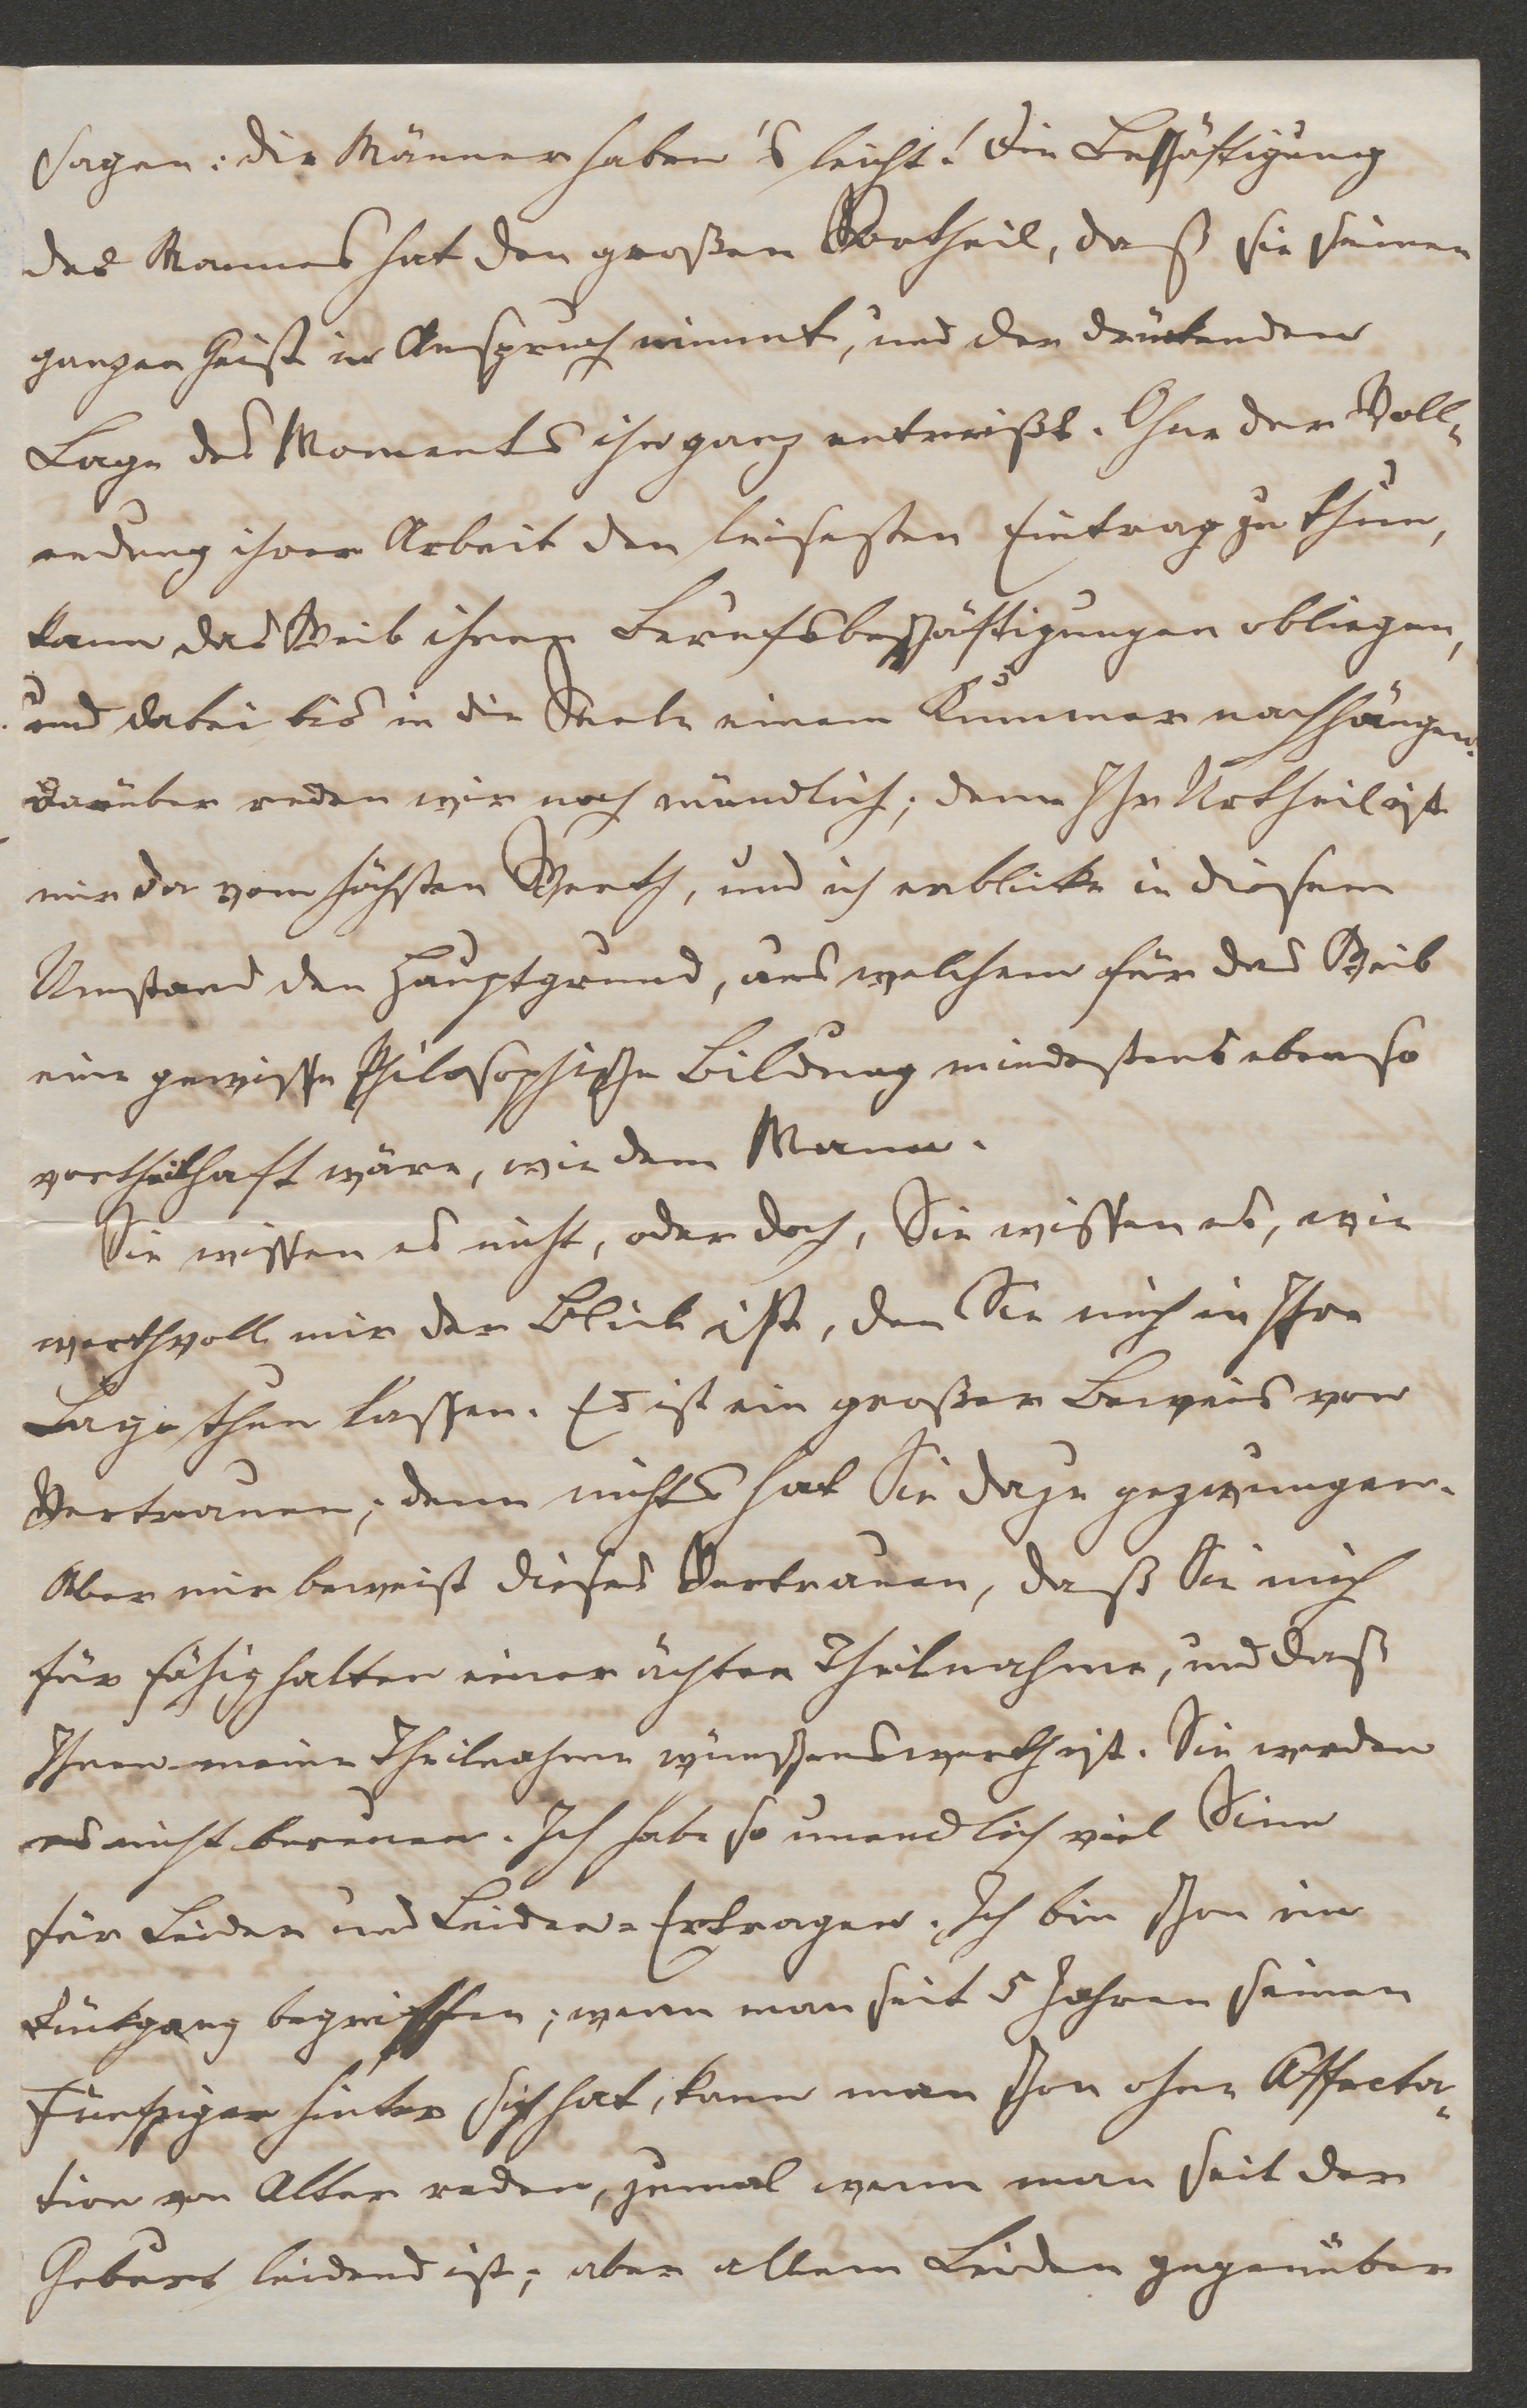 sagen: die Männer haben's leicht! Die Beschäftigung
des Mannes hat den großen Vortheil, daß sie seinen
ganzen Geist in Anspruch nimmt, und der drückenden
Lage des Moments ihn ganz entreißt. Ohne der Voll-
endung ihrer Arbeit den leisesten Eintrag zu thun,
kann das Weib ihren Berufsbeschäftigungen obliegen,
und dabei bis in die Seele einem Kummer nachhängen.
Darüber reden wir noch mündlich; denn Ihr Urtheil ist
mir da vom höchsten Werth, und ich erblicke in diesem
Umstand den Hauptgrund, aus welchem für das Weib
eine gewisse philosophische Bildung mindestens ebenso
vortheilhaft wäre, wie dem Mann.
Sie wissen es nicht, oder doch, Sie wissen es, wie
werthvoll mir der Blick ist, den Sie mich in Ihre
Lage thun lassen. Es ist ein großer Beweis von
Vertrauen; denn nichts hat Sie dazu gezwungen.
Aber mir beweist dieses Vertrauen, daß Sie mich
für fähig halten einer ächten Theilnahme, und daß
Ihnen meine Theilnahme wünschenswerth ist. Sie werden
es nicht bereuen. Ich habe so unendlich viel Sinn
für Leiden und Leiden-Ertragen. Ich bin schon im
Rückgang begriffen; wenn man seit 5 Jahren seinen
Fünfziger hinter sich hat, kann man schon ohne Affecta-
tion von Alter reden, zumal wenn man seit der
Geburt leidend ist; aber allem Leiden gegenüber